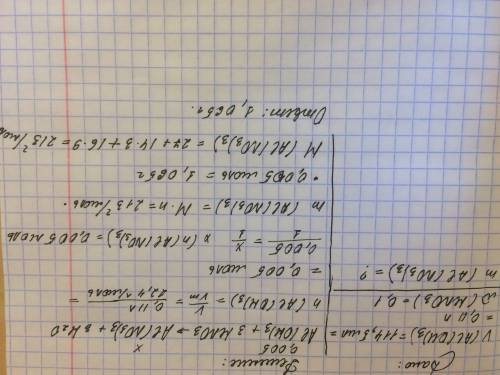 Дано:
V(Al(OH)3) = 114,5 мл =
= 0,11 л
ω(HNO3) = 0,1
m(Al(NO3)3) = ?
Решение:
0,005 x
Al(OH)3 + 3HNO3 → Al(NO3)3 + 3H2O
n(Al(OH)3) = V/Vm = 0,11 л/22,4 л/моль =
= 0,005 моль
0,005/1 = x/1 n(Al(NO3)3) = 0,005 моль
m(Al(NO3)3) = M · n = 213 г/моль ·
· 0,005 моль = 1,065 г
M(Al(NO3)3) = 27 + 14 · 3 + 16 · 9 = 213 г/моль
Ответ: 1,065 г.